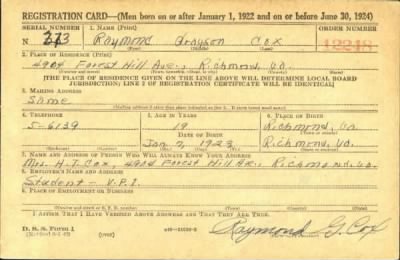 REGISTRATION CARD—(Men born on or after January 1, 1922 and on or before June 30, 1924)
SERIAL NUMBER 1. NAME (Print) ORDER NUMBER
Raymond Grayson Cox
2. PLACE OF RESIDENCE (Print)
4904 Forest Hill Ave., Richmond, Va.
[THE PLACE OF RESIDENCE GIVEN ON THE LINE ABOVE WILL DETERMINE LOCAL BOARD
JURISDICTION; LINE 2 OF REGISTRATION CERTIFICATE WILL BE IDENTICAL]
3. MAILING ADDRESS
Same
4. TELEPHONE 5. AGE IN YEARS 6. PLACE OF BIRTH
5-6139 19 Richmond, Va.
DATE OF BIRTH
Jan 7, 1923 Richmond, Va.
7. NAME AND ADDRESS OF PERSON WHO WILL ALWAYS KNOW YOUR ADDRESS
Mrs. H. T. Cox, 4904 Forest Hill Ave., Richmond, Va.
8. EMPLOYER'S NAME AND ADDRESS
Student - V.P.I.
9. PLACE OF EMPLOYMENT OR BUSINESS
I AFFIRM THAT I HAVE VERIFIED ABOVE ANSWERS AND THAT THEY ARE TRUE.
D. S. S. Form 1
Raymond G. Cox